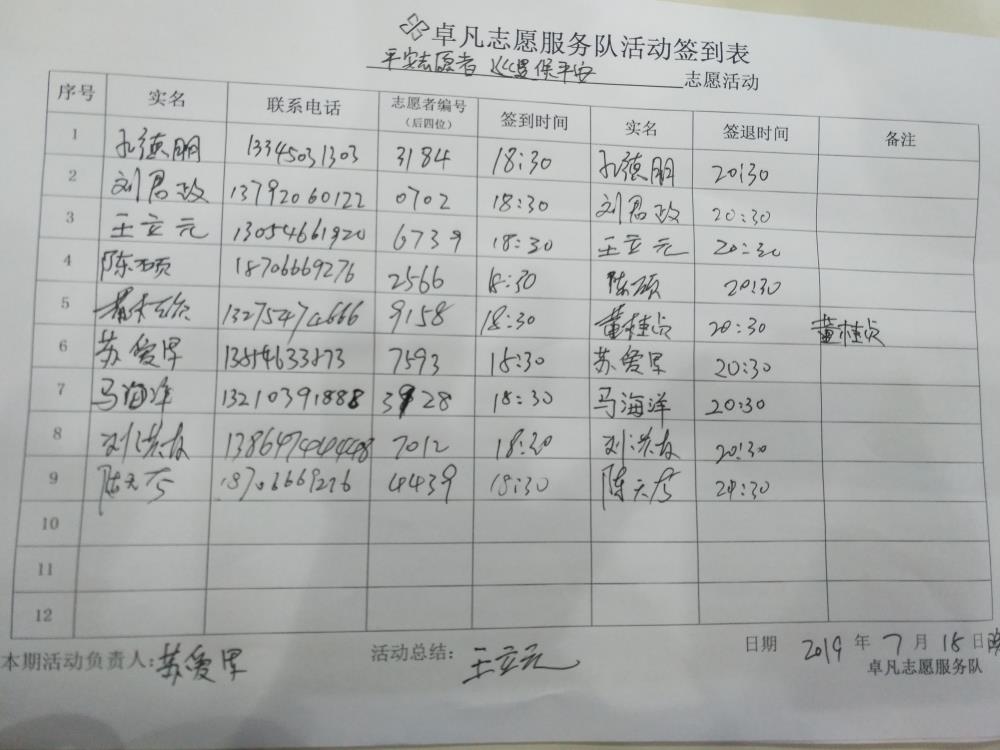 卓凡志愿服务队活动签到表
平安志愿者 巡逻保平安 志愿活动
序号 实名 联系电话 志愿者编号（后四位） 签到时间 实名 签退时间 备注
1 孔德朋 13345031303 3184 18:30 孔德朋 20:30
2 刘君政 13792060122 0702 18:30 刘君政 20:30
3 王立元 13054661920 6739 18:30 王立元 20:30
4 陈硕 18706669276 2566 18:30 陈硕 20:30
5 13275474666 9158 18:30 董桂贞 20:30 董桂贞
6 苏爱军 7593 18:30 苏爱军 20:30
7 马海洋 13210391888 3928 18:30 马海洋 20:30
8 7012 18:30 20:30
9 18706669276 4439 18:30 20:30
10
11
12
本期活动负责人:苏爱军 活动总结: 王立元 日期 2019 年 7 月 18 日
卓凡志愿服务队